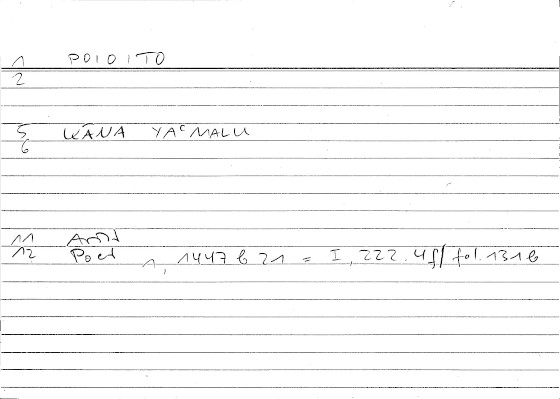 1 POIOITO
2
5 KĀNA YAʿMALU
6
11 Arist
12 Poet 1, 1447 b 21 = I, 222.4f/fol.131b